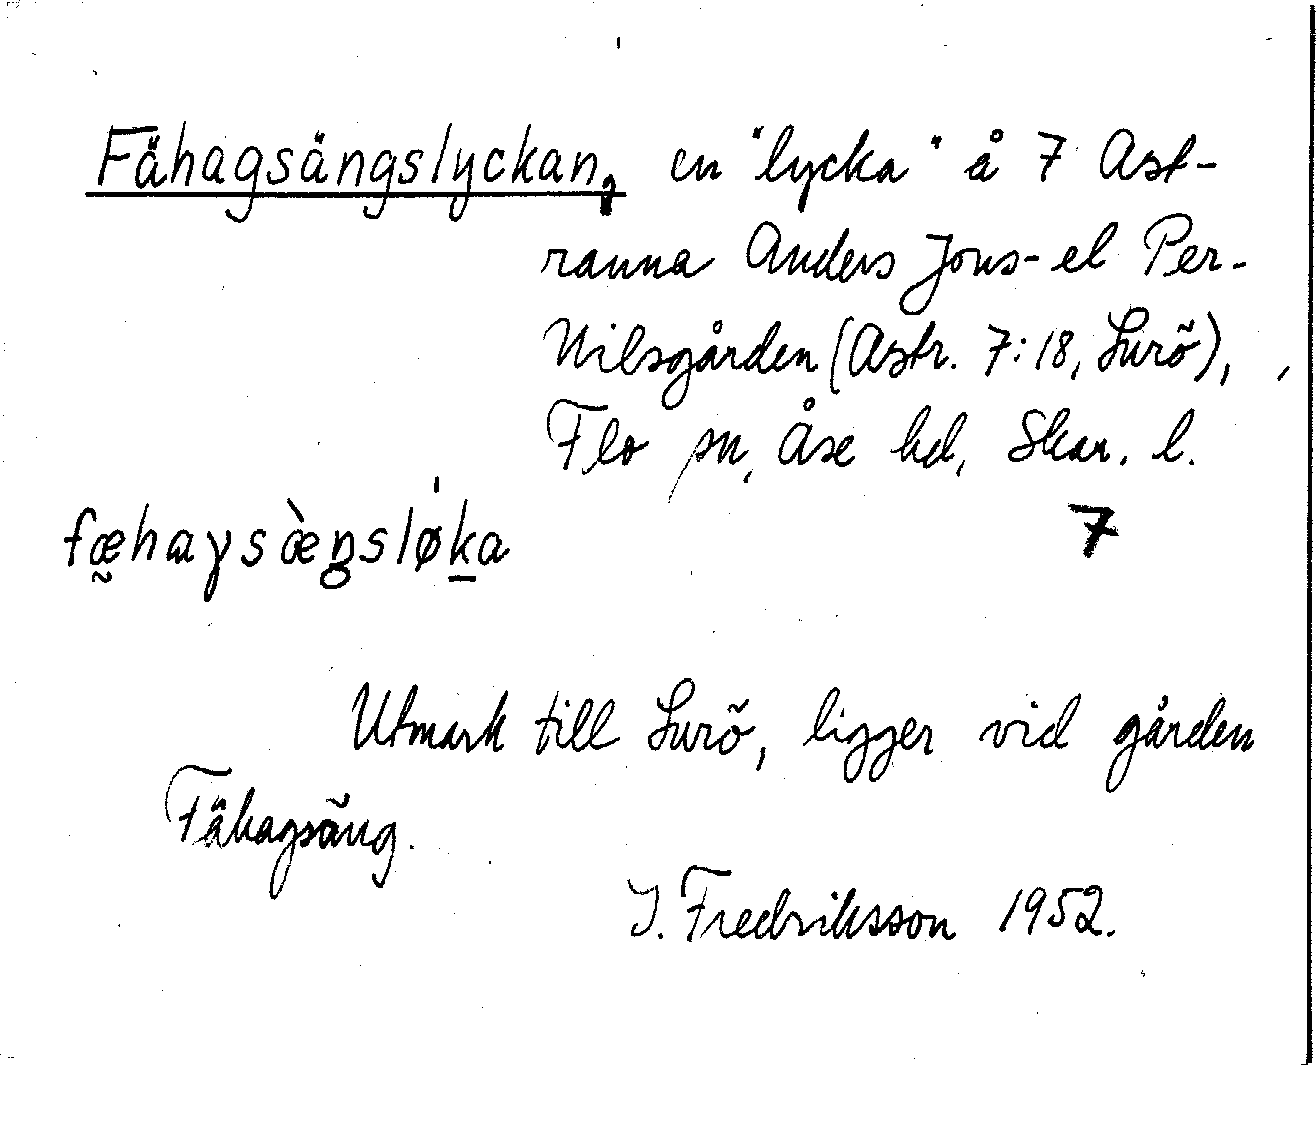 Fähagsängslyckan, en "lycka" å 7 Ast-
ranna Anders Jons- el Per-
Nilsgården (Astr. 7:18, Surö),
Flo sn, Åse hd, Skar. l.
fæ̰haγsæ̀ŋsløka
7
Utmark till Surö, ligger vid gården
Fähagsäng.
I. Fredriksson 1952.